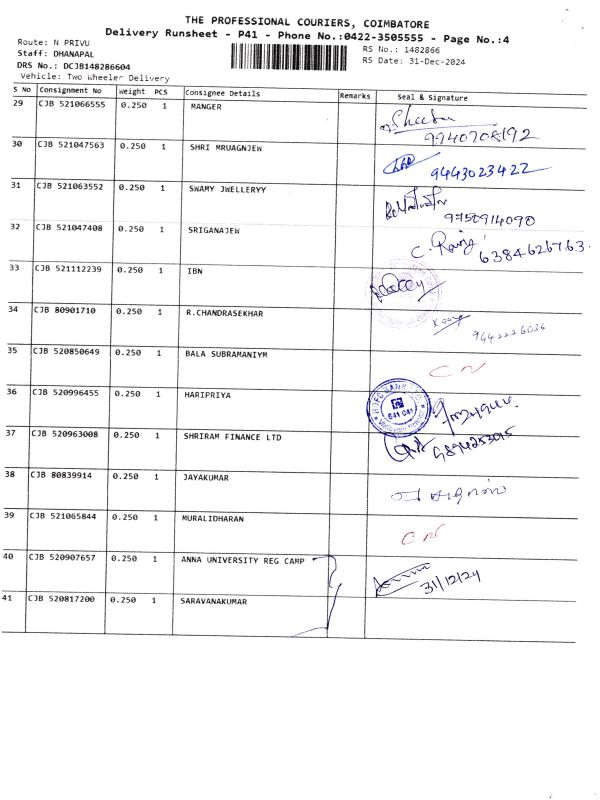 THE PROFESSIONAL COURIERS, COIMBATORE
Delivery Runsheet - P41 - Phone No.:0422-3505555 - Page No.:4
Route: N PRIVU
RS No.: 1482866
Staff: DHANAPAL
RS Date: 31-Dec-2024
DRS No.: DCJB148286604
Vehicle: Two Wheeler Delivery
S No Consignment No Weight PCS Consignee Details Remarks Seal & Signature
29 CJB 521066555 0.250 1 MANGER
9940708192
30 CJB 521047563 0.250 1 SHRI MRUAGNJEW
9443023422
31 CJB 521063552 0.250 1 SWAMY JWELLERYY
9750914090
32 CJB 521047408 0.250 1 SRIGANAJEW
6384626763
33 CJB 521112239 0.250 1 IBN
34 CJB 80901710 0.250 1 R.CHANDRASEKHAR
9442226036
35 CJB 520850649 0.250 1 BALA SUBRAMANIYM
CN
36 CJB 520996455 0.250 1 HARIPRIYA
HDFC BANK LTD
641 041
37 CJB 520963008 0.250 1 SHRIRAM FINANCE LTD
9894253095
38 CJB 80839914 0.250 1 JAYAKUMAR
39 CJB 521065844 0.250 1 MURALIDHARAN
CN
40 CJB 520907657 0.250 1 ANNA UNIVERSITY REG CAMP
31/12/24
41 CJB 520817200 0.250 1 SARAVANAKUMAR